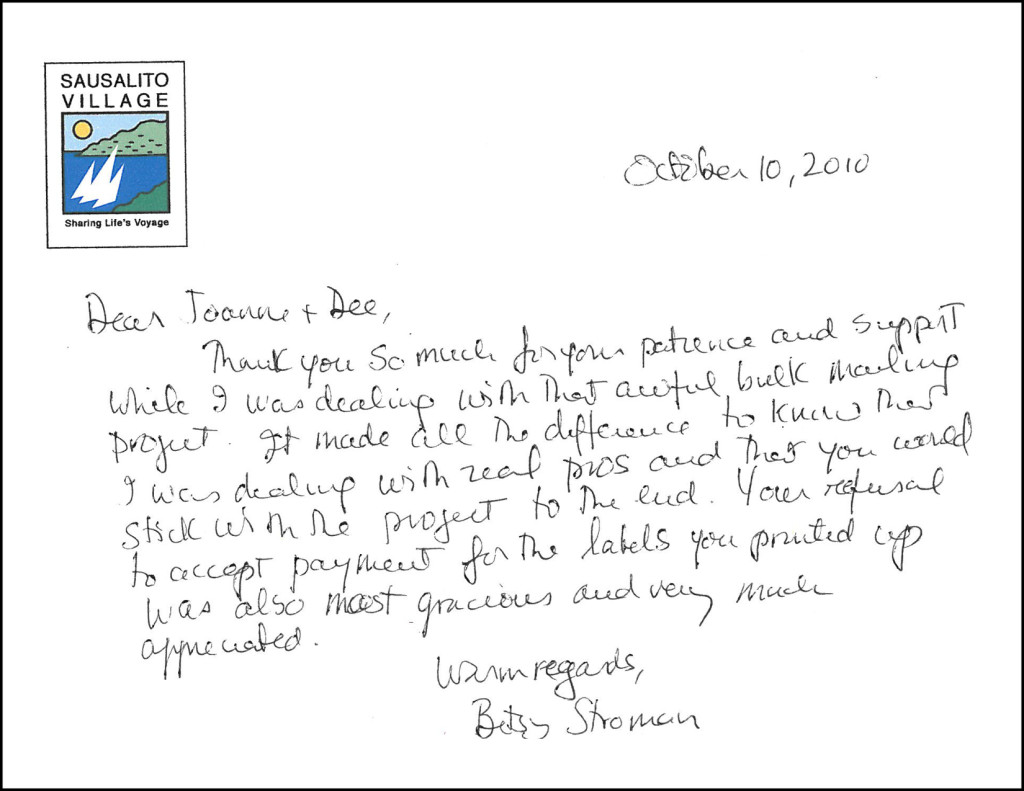 SAUSALITO
VILLAGE
Sharing Life's Voyage
October 10, 2010
Dear Joanne + Dee,
Thank you so much for your patience and support
while I was dealing with that awful bulk mailing
project. It made all the difference to know that
I was dealing with real pros and that you would
stick with the project to the end. Your refusal
to accept payment for the labels you printed up
was also most gracious and very much
appreciated.
Warm regards,
Betsy Stroman